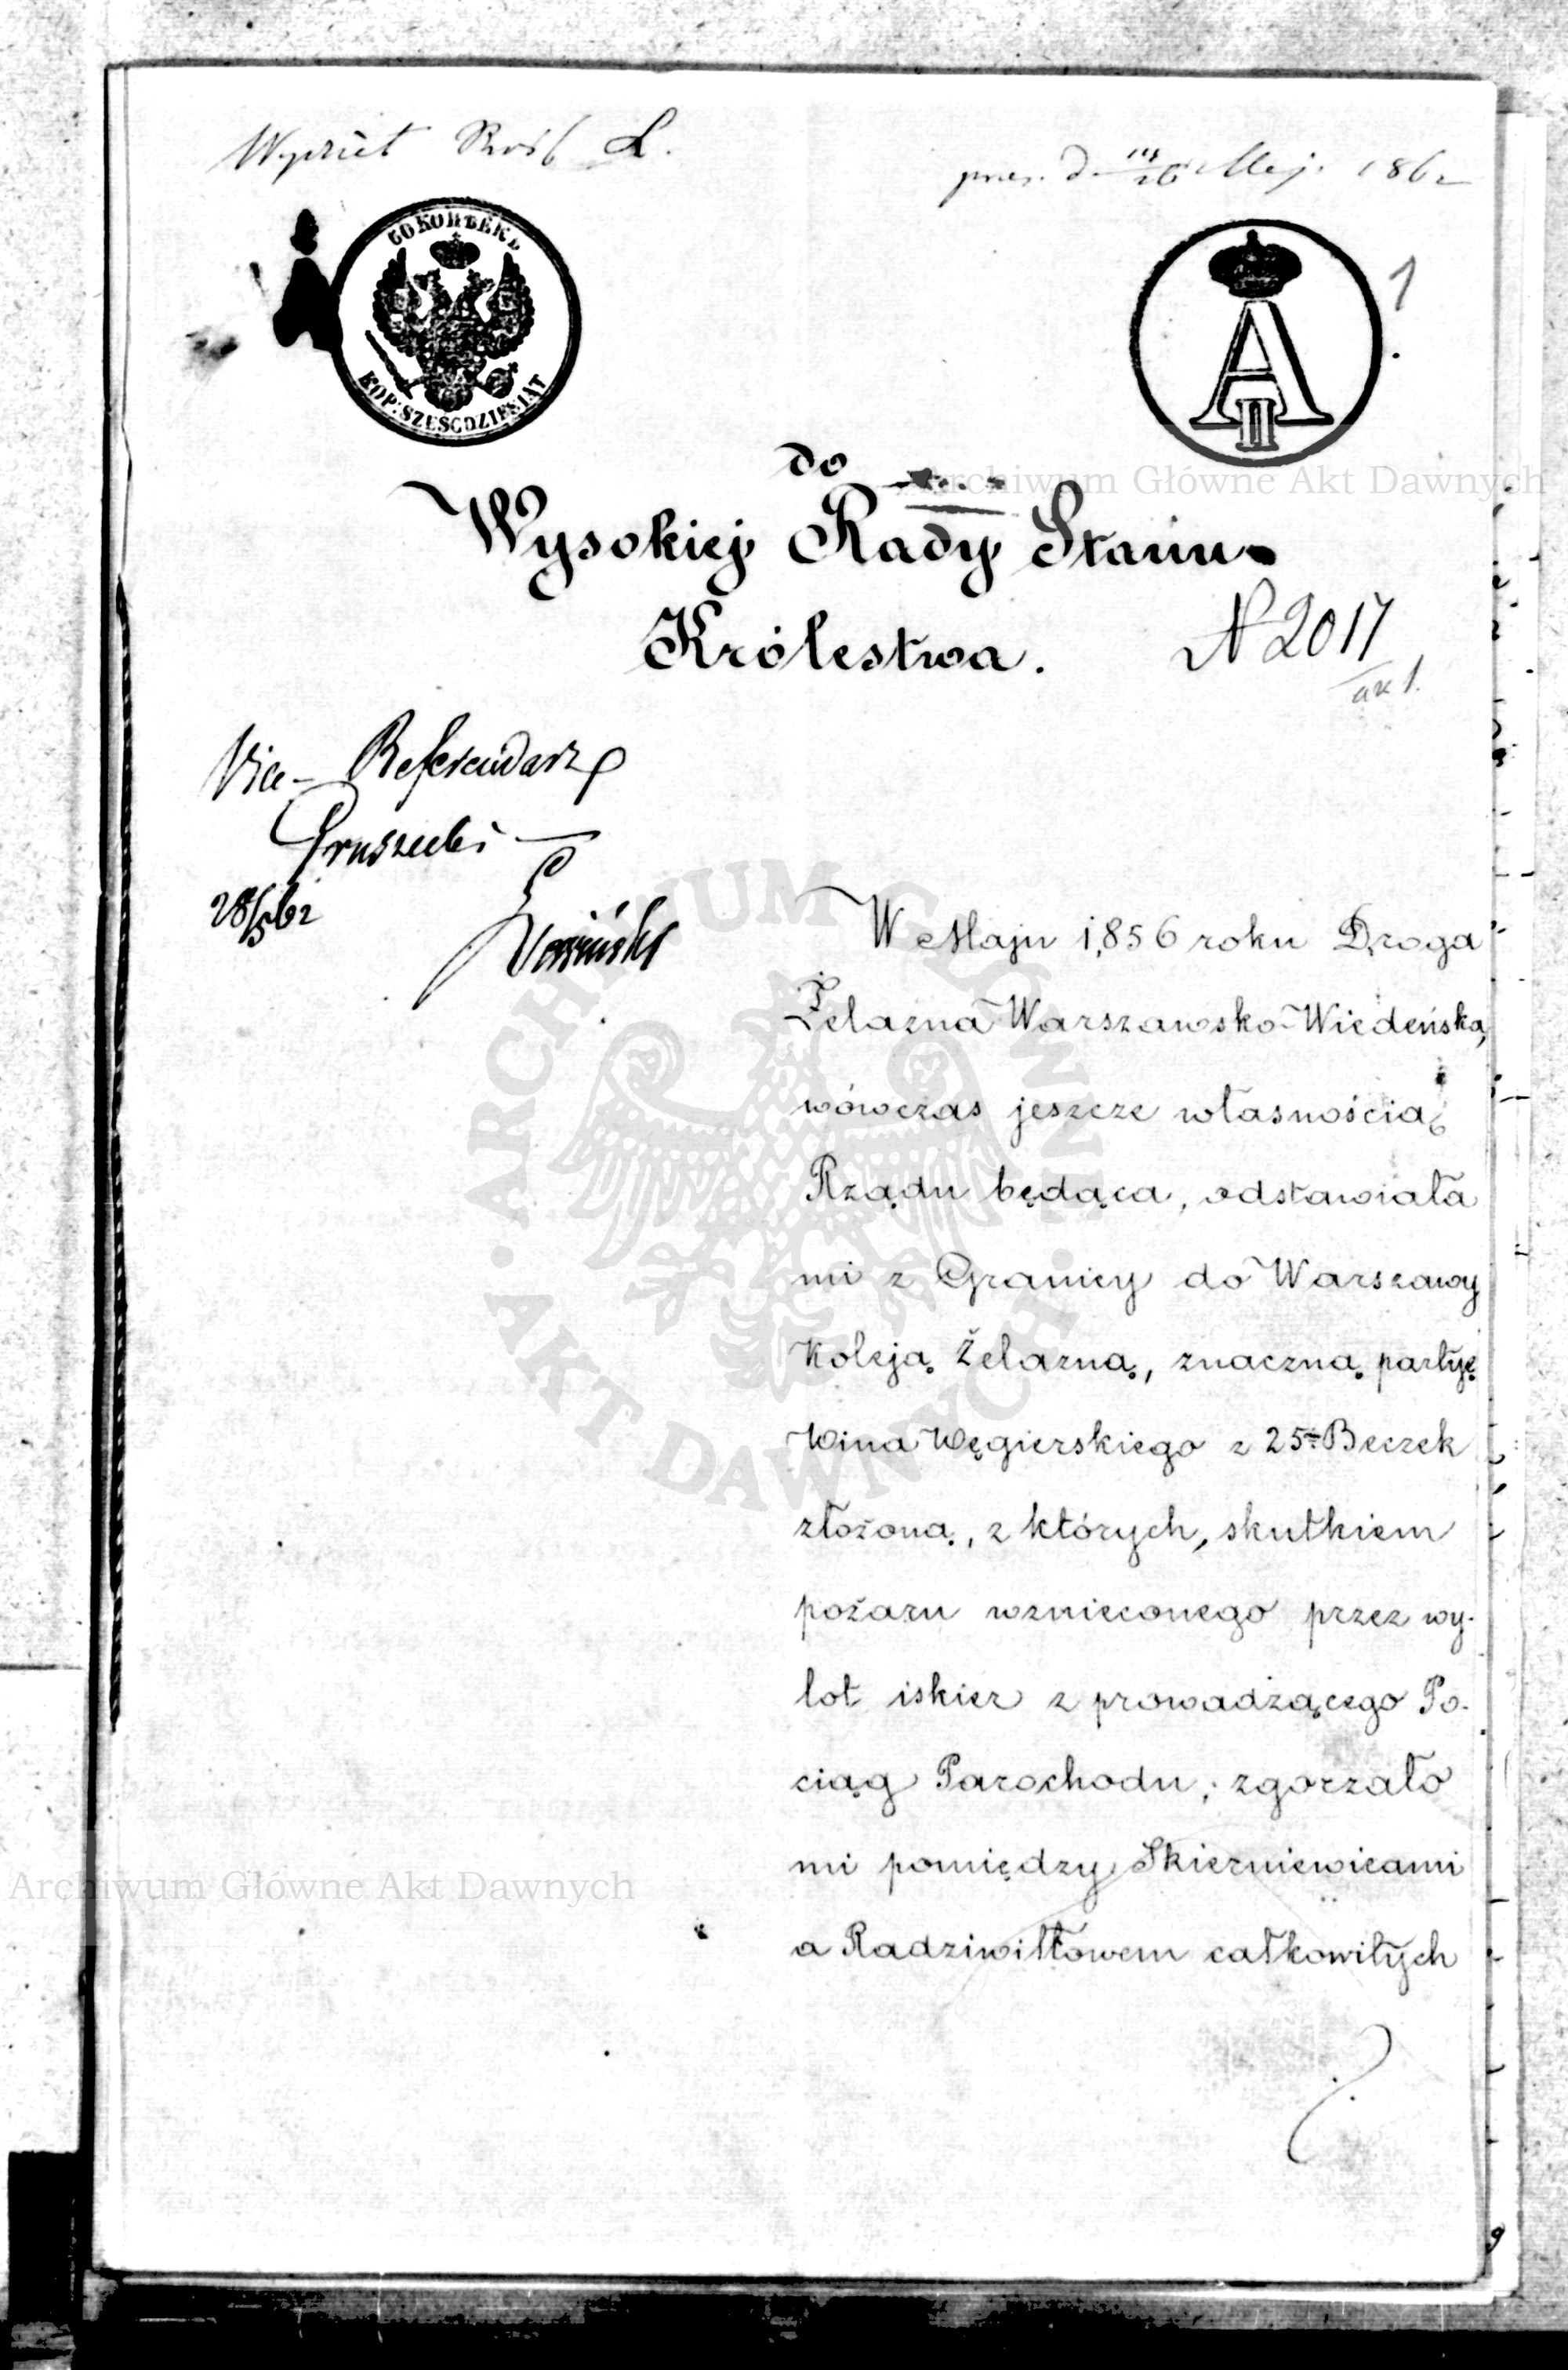 Wydział Próśb
pres. d. 14/26 Maj. 1862
60 КОПѢЕКЪ
KOP: SZEŚĆDZIESIĄT
A II
1
do
Wysokiej Rady Stanu
Królestwa.
N 2017
ark 1.
Vice-Referendarz
Pruszecki
28/5 62
W Maju 1,856 roku Droga
Żelazna Warszawsko-Wiedeńska,
wówczas jeszcze własnością
Rządu będąca, odstawiała
mi z Granicy do Warszawy
Koleją Żelazną, znaczną partyę
Wina Węgierskiego z 25 Beczek
złożoną, z których, skutkiem
pożaru wznieconego przez wy-
lot iskier z prowadzącego Po-
ciąg Parochodu, zgorzało
mi pomiędzy Skierniewicami
a Radziwiłłowem całkowitych
Archiwum Główne Akt Dawnych
ARCHIWUM GŁÓWNE
AKT DAWNYCH
Archiwum Główne Akt Dawnych